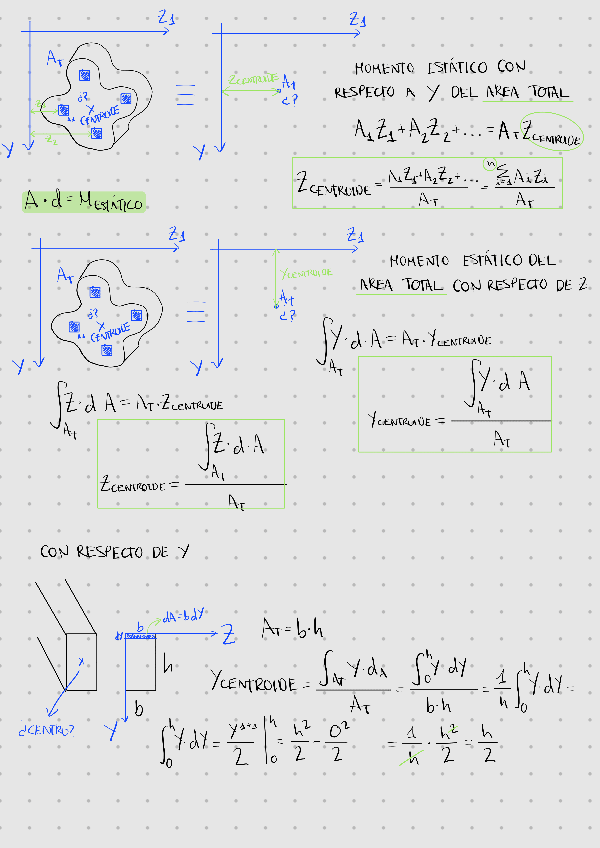 Z₁
Aₜ
d?
x
CENTROIDE
Z₂
Y
=
Z₁
ZCENTROIDE
Aₜ
d?
Y
MOMENTO ESTÁTICO CON
RESPECTO A Y DEL AREA TOTAL
A₁Z₁+A₂Z₂+...=AₜZCENTROIDE
ZCENTROIDE = (A₁Z₁+A₂Z₂+...)/Aₜ = (Σⁿᵢ₌₁ A₁Z₁)/Aₜ
A·d=MESTÁTICO
Z₁
Aₜ
d?
x
CENTROIDE
Y
=
Z₁
YCENTROIDE
Aₜ
d?
MOMENTO ESTÁTICO DEL
AREA TOTAL CON RESPECTO DE Z
∫Aₜ Y·d·A=Aₜ·YCENTROIDE
∫Aₜ Z·d A=Aₜ·ZCENTROIDE
YCENTROIDE = (∫Aₜ Y·d A)/Aₜ
ZCENTROIDE = (∫Aₜ Z·d·A)/Aₜ
CON RESPECTO DE Y
dA=bdY
b
Z
h
b
Y
dCENTRO?
x
Aₜ=b·h
YCENTROIDE = (∫Aₜ Y·dA)/Aₜ = (∫₀ʰ Y·dY)/(b·h) = 1/h ∫₀ʰ Y·dY=
∫₀ʰ Y·dY = Y¹⁺¹/2 |₀ʰ = h²/2 - 0²/2 = 1/h · h²/2 = h/2